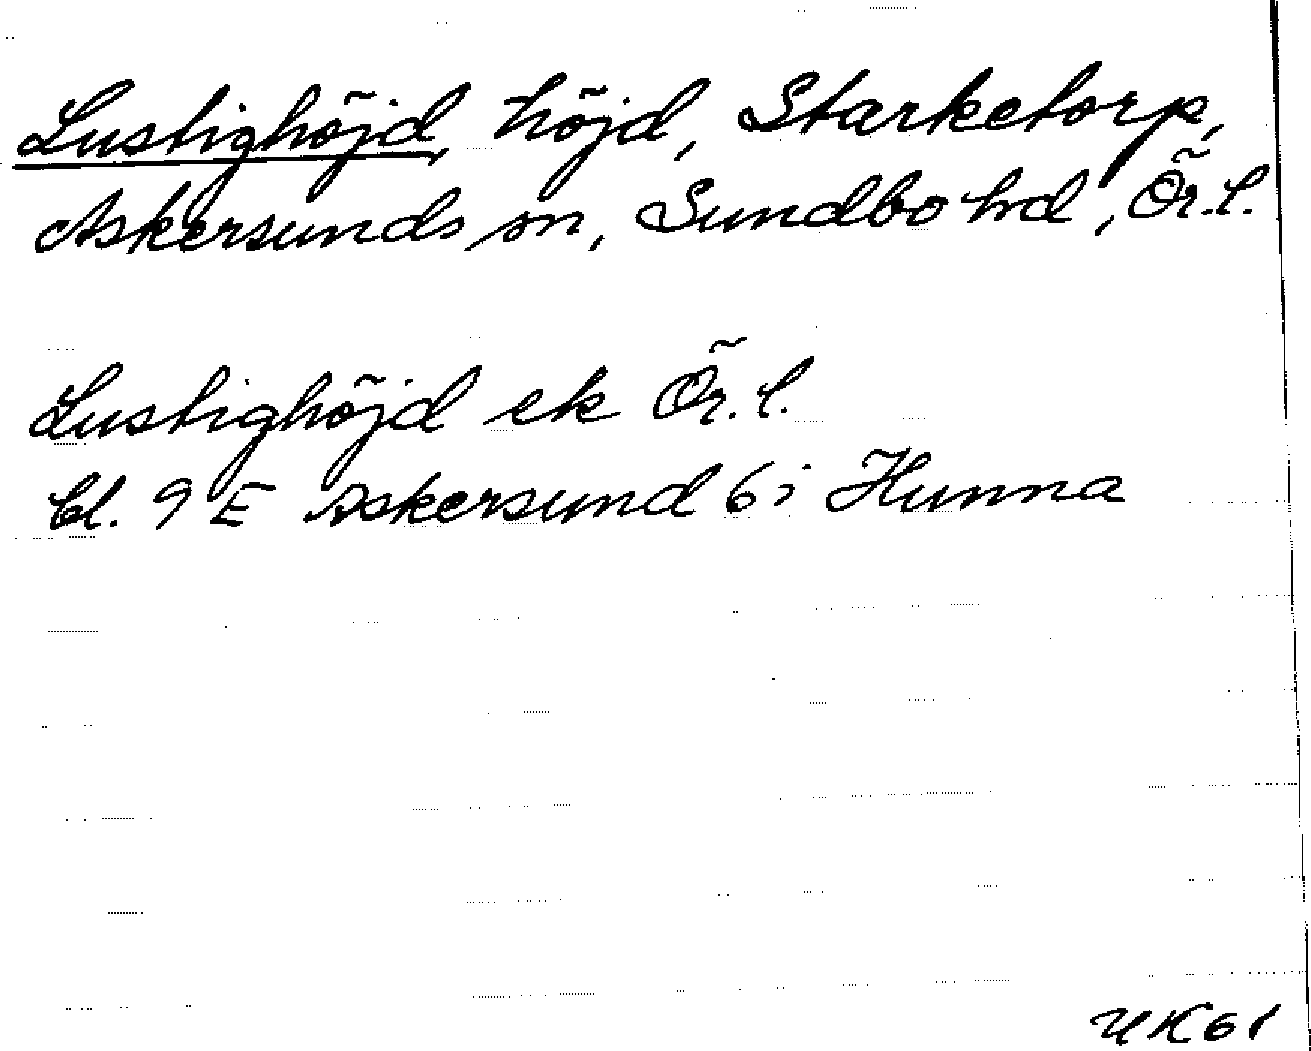 Lustighöjd, höjd, Starketorp,
Askersunds sn, Sundbo hd, Ör. l.
Lustighöjd ek Ör. l.
bl. 9 E Askersund 6 i Hunna
UK 61